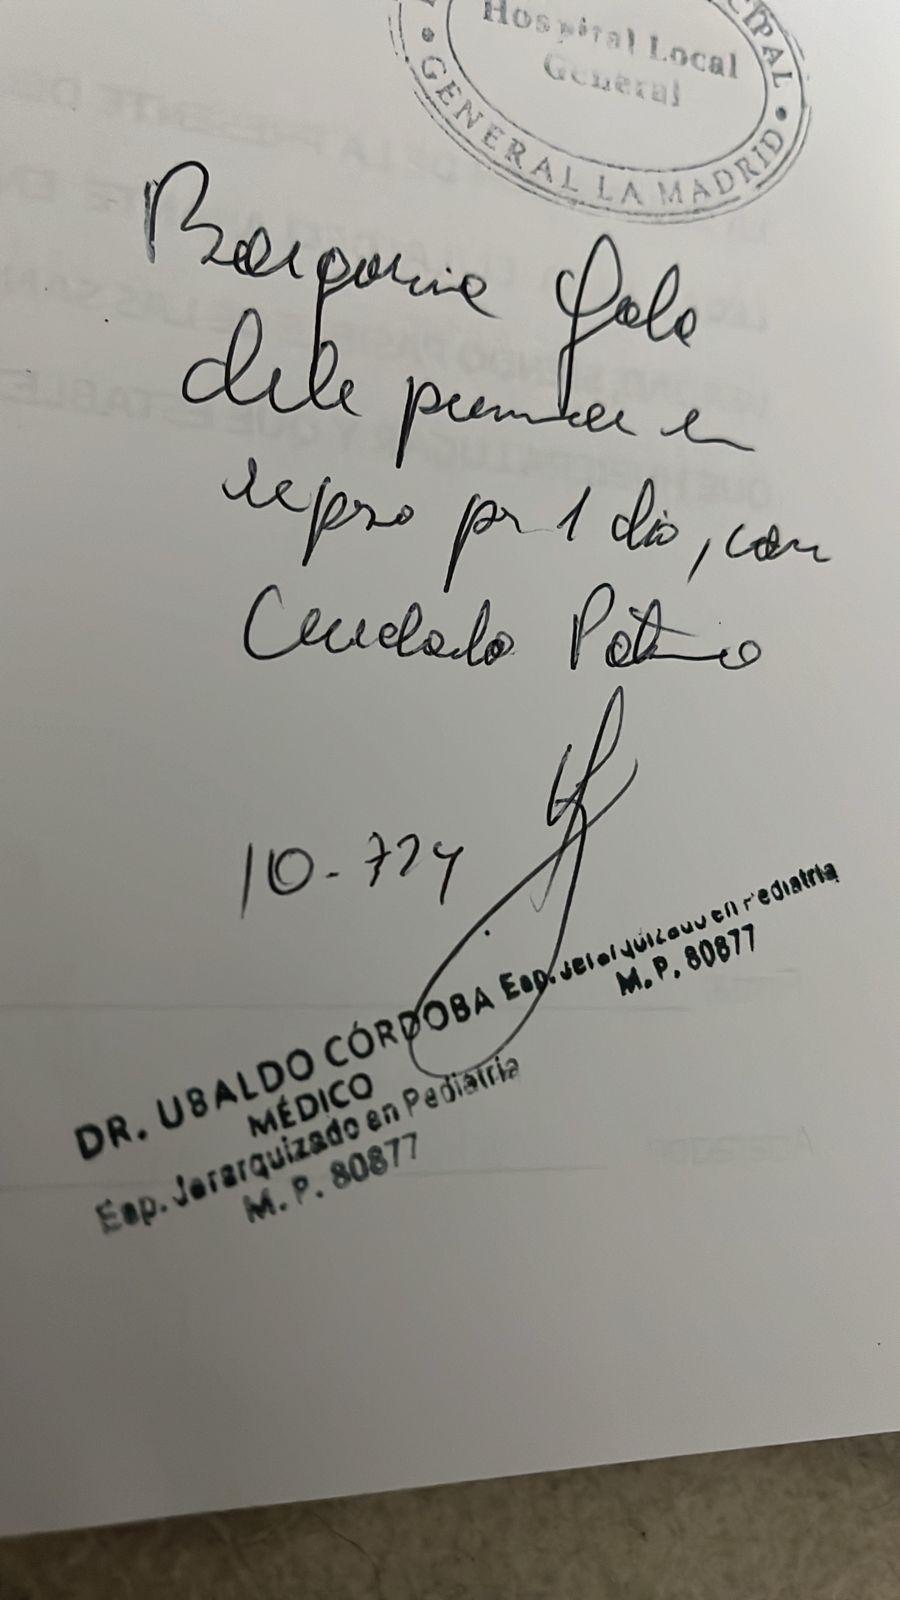 Hospital Local
General
GENERAL LA MADRID
Gala
debe permanecer en
reposo por 1 día, con
Cuidado Paterno
10-7-24
DR. UBALDO CÓRDOBA Esp. Jerarquizado en Pediatria
M.P. 80877
MÉDICO
Esp. Jerarquizado en Pediatria
M.P. 80877